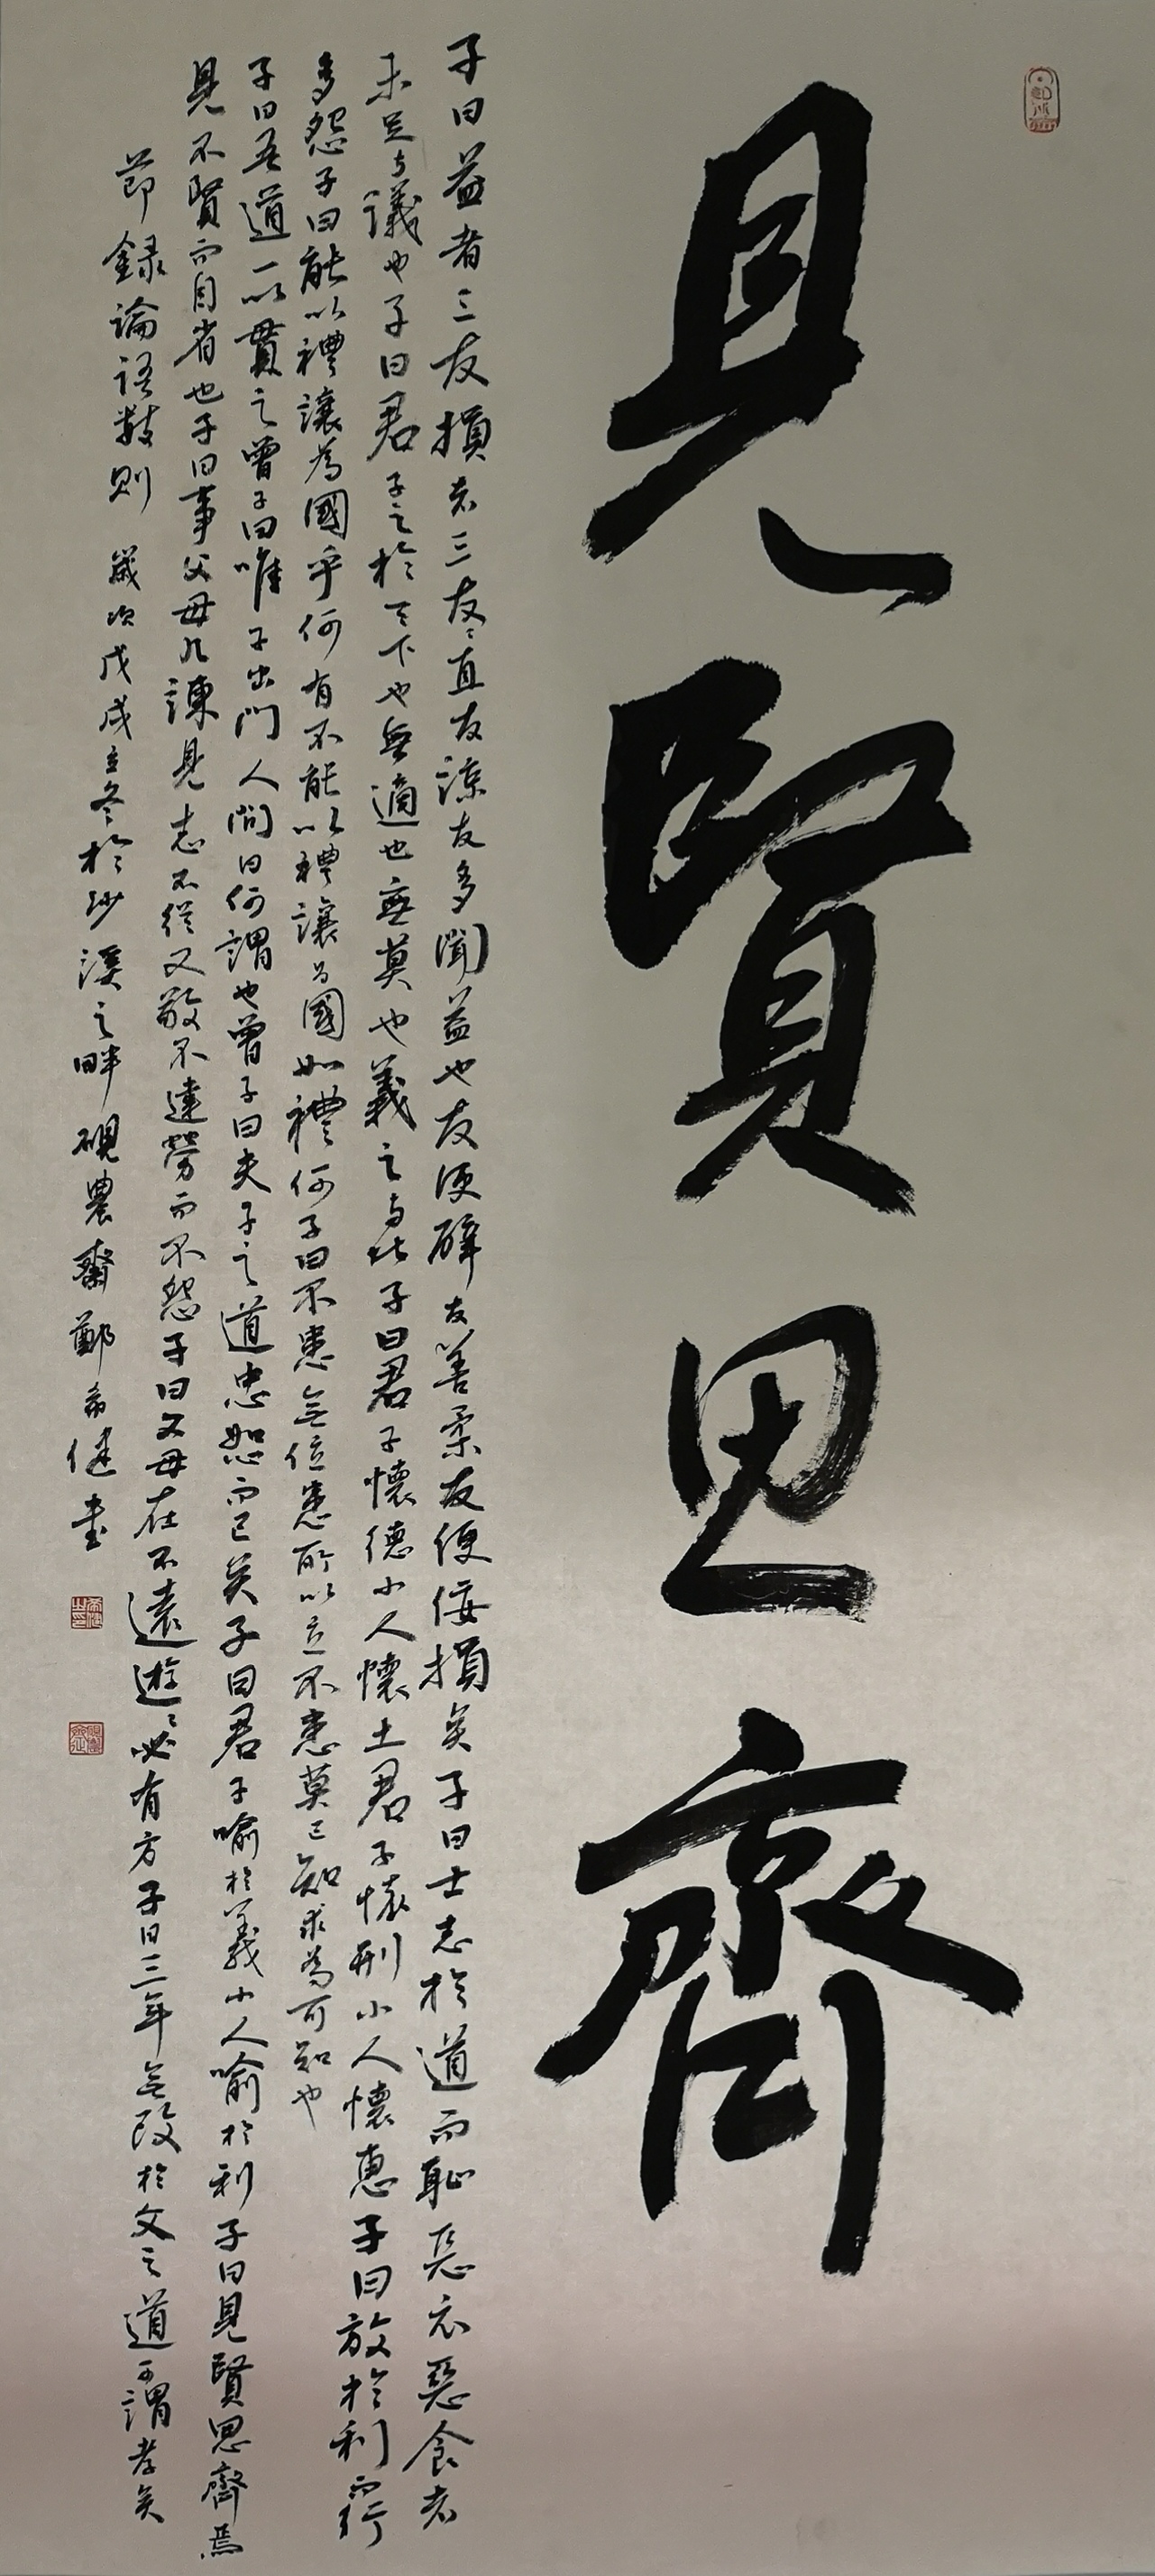 見賢思齊
子曰益者三友損者三友友直友諒友多聞益也友便辟友善柔友便佞損矣子曰士志於道而恥惡衣惡食者
未足与議也子曰君子之於天下也無適也無莫也義之与比子曰君子懷德小人懷土君子懷刑小人懷惠子曰放於利而行
多怨子曰能以禮讓為國乎何有不能以禮讓為國如禮何子曰不患無位患所以立不患莫己知求為可知也
子曰吾道一以貫之曾子曰唯子出門人問曰何謂也曾子曰夫子之道忠恕而已矣子曰君子喻於義小人喻於利子曰見賢思齊焉
見不賢而自省也子曰事父母几諫見志不從又敬不違勞而不怨子曰父母在不遠遊遊必有方子曰三年無改於父之道可謂孝矣
節録論語數則 歲次戊戌立冬於沙溪之畔硯農齋鄭希健書